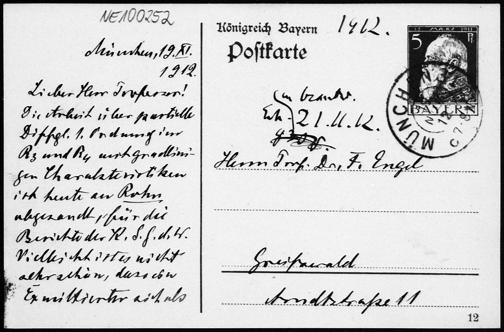 NE100252
München, 19. XI.
1912.
Lieber Herr Professor!
Die Arbeit über partielle
Diffgl. 1. Ordnung im
R3 und R4 mit gradlini-
gen Charakteristiken
ist heute an Rohn
abgesandt, für die
Berichte der K. S. G. d. W.
Vielleicht ist es nicht
sehr schön, dass ein
Exmittierter sich als
Königreich Bayern
1912.
Postkarte
5 Pf
BAYERN
MÜNCHEN
zu beantw.
Erh. 21. 11. 12.
Herrn Prof. Dr. F. Engel
Greifswald
Arndtstraße 11
12